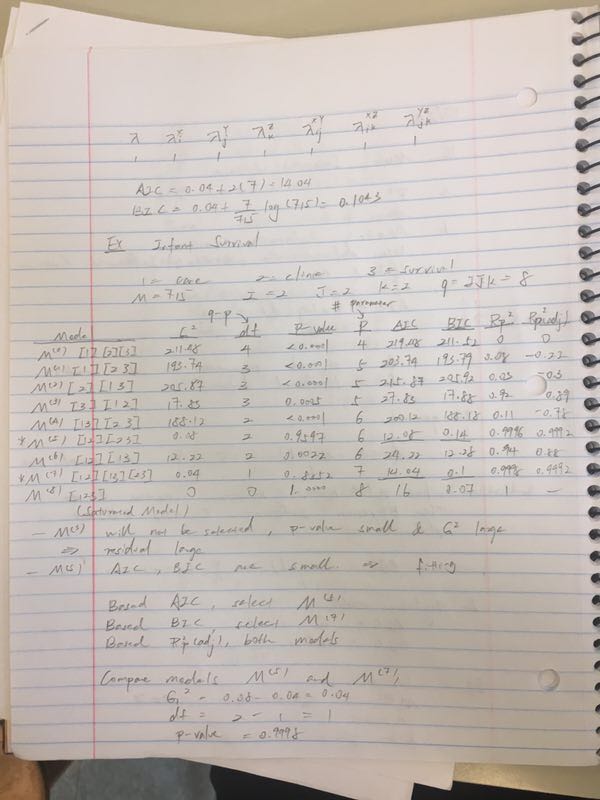 λ λᵢˣ λⱼʸ λₖᶻ λᵢⱼˣʸ λᵢₖˣᶻ λⱼₖʸᶻ
1 1 1 1 1 1 1
AIC = 0.04 + 2(7) = 14.04
BIC = 0.04 + 7/715 log(715) = 0.1043
Ex Infant Survival
1 = care 2 = clinic 3 = survival
n = 715 I = 2 J = 2 K = 2 q = IJK = 8
q-p # parameter
Model G² df P-value P AIC BIC Rp² Rp²(adj)
M⁽⁰⁾ [1][2][3] 211.08 4 <0.001 4 219.08 211.52 0 0
M⁽¹⁾ [1][23] 193.74 3 <0.001 5 203.74 193.79 0.08 -0.22
M⁽²⁾ [2][13] 205.87 3 <0.0001 5 215.87 205.92 0.03 -0.3
M⁽³⁾ [3][12] 17.83 3 0.0005 5 27.83 17.88 0.92 0.89
M⁽⁴⁾ [13][23] 188.12 2 <0.001 6 200.12 188.18 0.11 -0.78
*M⁽⁵⁾ [12][23] 0.08 2 0.9597 6 12.08 0.14 0.9996 0.9992
M⁽⁶⁾ [12][13] 12.22 2 0.0022 6 24.22 12.28 0.94 0.88
*M⁽⁷⁾ [12][13][23] 0.04 1 0.8352 7 14.04 0.1 0.9998 0.9992
M⁽⁸⁾ [123] 0 0 1.0000 8 16 0.07 1 —
(Saturated Model)
- M⁽³⁾ will not be selected, p-value small & G² large
⇒ residual large
- M⁽⁵⁾ AIC, BIC are small ⇒ fitting
Based AIC, select M⁽⁵⁾
Based BIC, select M⁽⁷⁾
Based Rp²(adj), both models
Compare models M⁽⁵⁾ and M⁽⁷⁾
G² = 0.08 - 0.04 = 0.04
df = 2 - 1 = 1
p-value = 0.9998